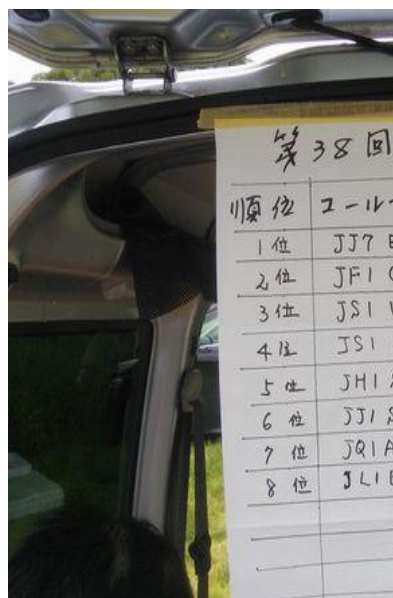 第38回
順位 コール
1位 JJ7
2位 JF1
3位 JS1
4位 JS1
5位 JH1
6位 JJ1S
7位 JQ1A
8位 JL1E